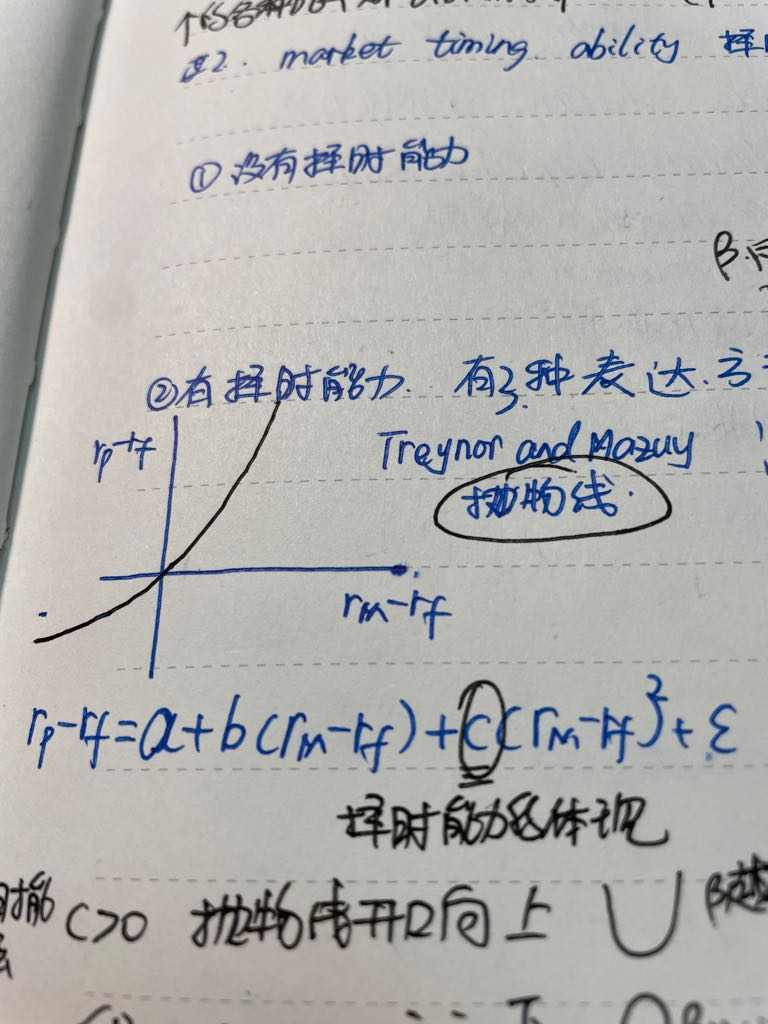 2. market timing ability 择
① 没有择时能力
β.
② 有择时能力. 有3种表达.方
rp-rf
Treynor and Mazuy
抛物线.
rm-rf
rp-rf=a+b(rm-rf)+c(rm-rf)²+ε
择时能力的体现
时能 C>0 抛物线开口向上 ∪ β越